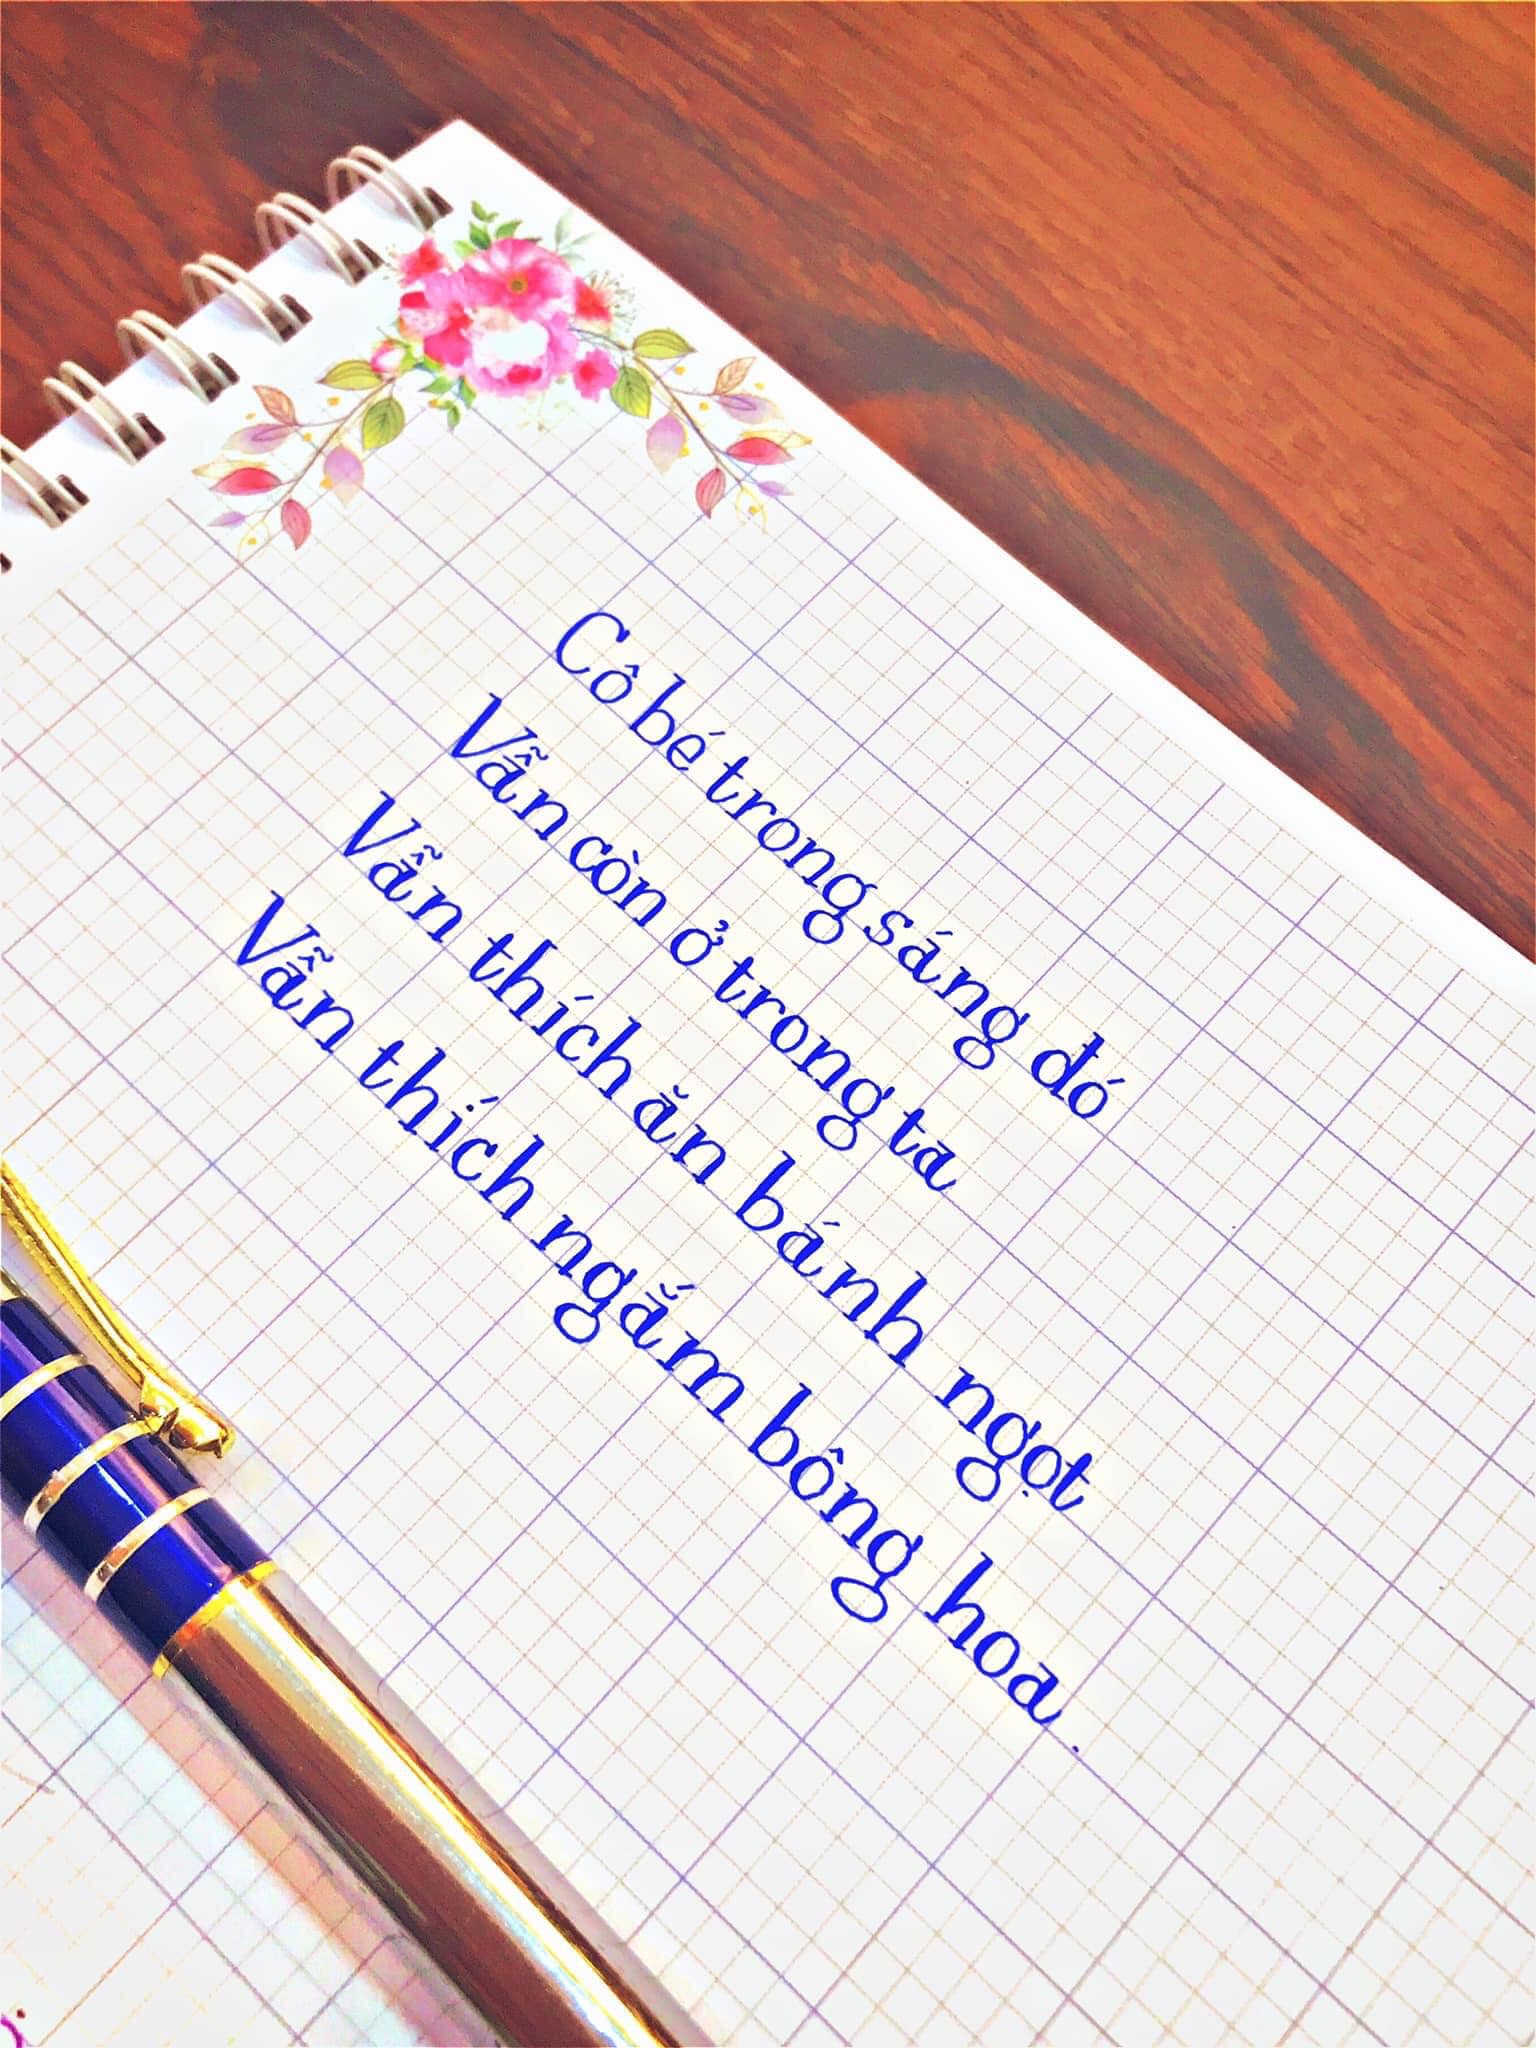 Cô bé trong sáng đó
Vẫn còn ở trong ta
Vẫn thích ăn bánh ngọt
Vẫn thích ngắm bông hoa.